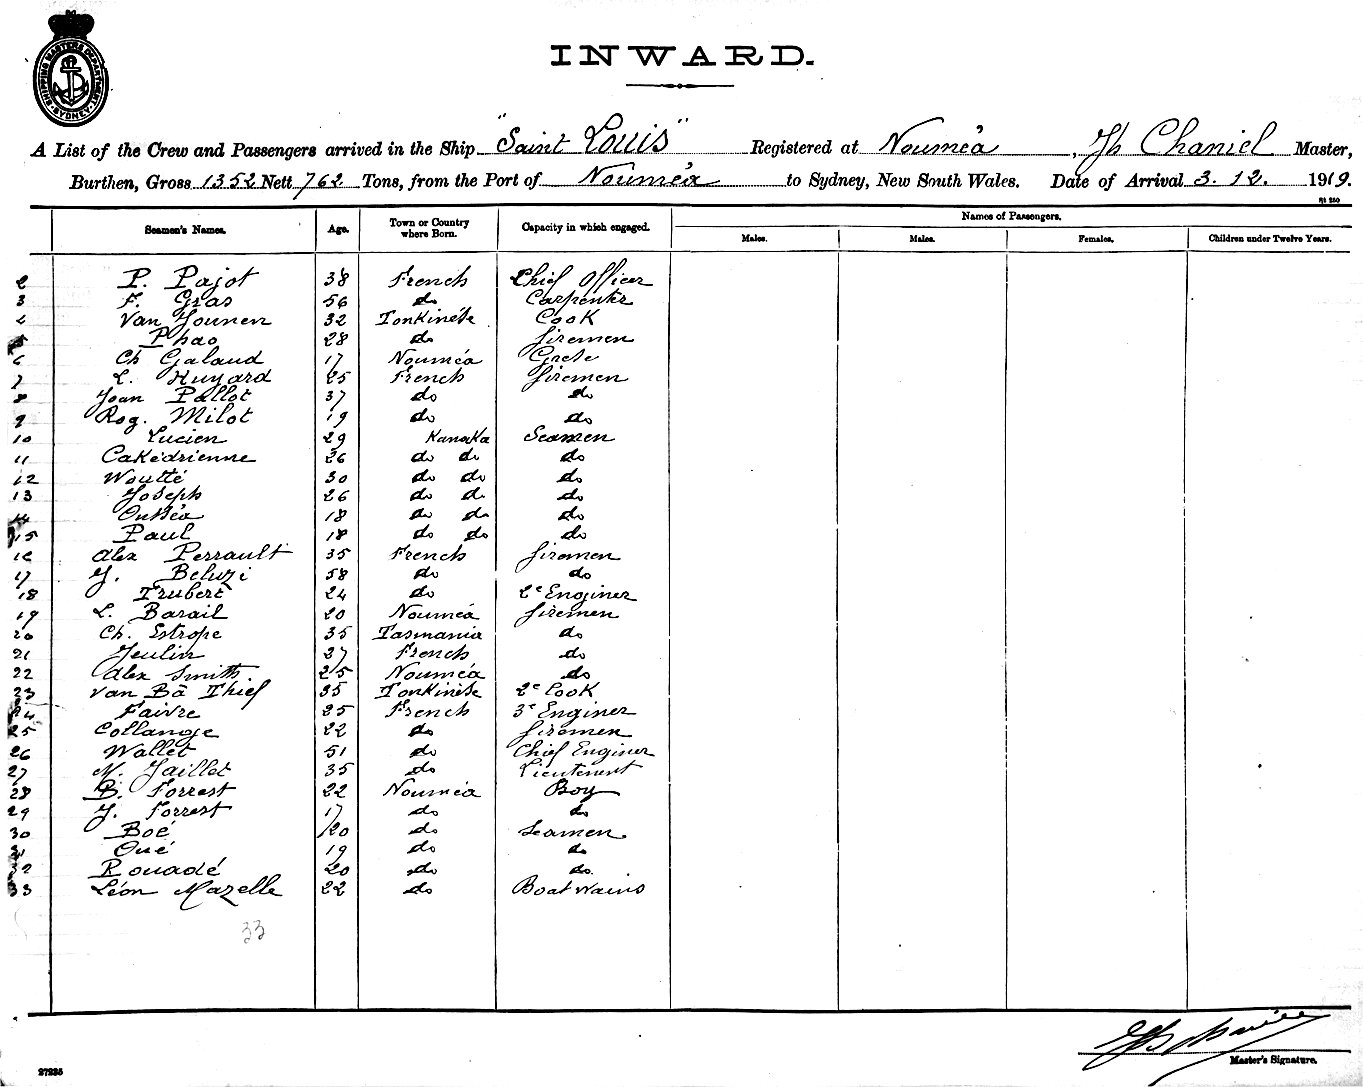 SHIPPING MASTERS DEPARTMENT SYDNEY
INWARD.
A List of the Crew and Passengers arrived in the Ship "Saint Louis" Registered at Nouméa, Jh Chaniel Master,
Burthen, Gross 1352 Nett 762 Tons, from the Port of Nouméa to Sydney, New South Wales. Date of Arrival 3.12. 1919.
Seamen's Names. Age. Town or Country where Born. Capacity in which engaged. Names of Passengers.
Males. Males. Females. Children under Twelve Years.
2 P. Pajot 38 French Chief Officer
3 F. Gras 56 do Carpenter
4 Van Younen 32 Tonkinése Cook
5 Phao 28 do firemen
6 Ch Galaud 17 Nouméa
7 L. Huyard 25 French firemen
8 Jean Pallot 37 do do
9 Rog. Milot 19 do do
10 Lucien 29 Kanaka Seamen
11 Cakédrienne 26 do do do
12 Woutté 30 do do do
13 Joseph 26 do do do
14 18 do do do
15 Paul 18 do do do
16 Alex Perrault 35 French firemen
17 J. Beluzi 58 do do
18 Trubert 24 do 2e Enginer
19 L. Barail 20 Nouméa firemen
20 Ch. Estrope 35 Tasmania do
21 Jeulin 27 French do
22 Alex Smith. 25 Nouméa do
23 Van Bâ Thief 35 Tonkinése 2e Cook
24 Faivre 25 French 3e Enginer
25 Collange 22 do firemen
26 Wallet 51 do Chief Enginer
27 M. Jaillot 35 do Lieutenent
28 B. Forrest 22 Nouméa Boy
29 J. Forrest 17 do do
30 Boé 20 do Seamen.
31 Oué 19 do do
32 Rouadé 20 do do.
33 Léon Mazelle 22 do Boatwains
33
Master's Signature.
27235